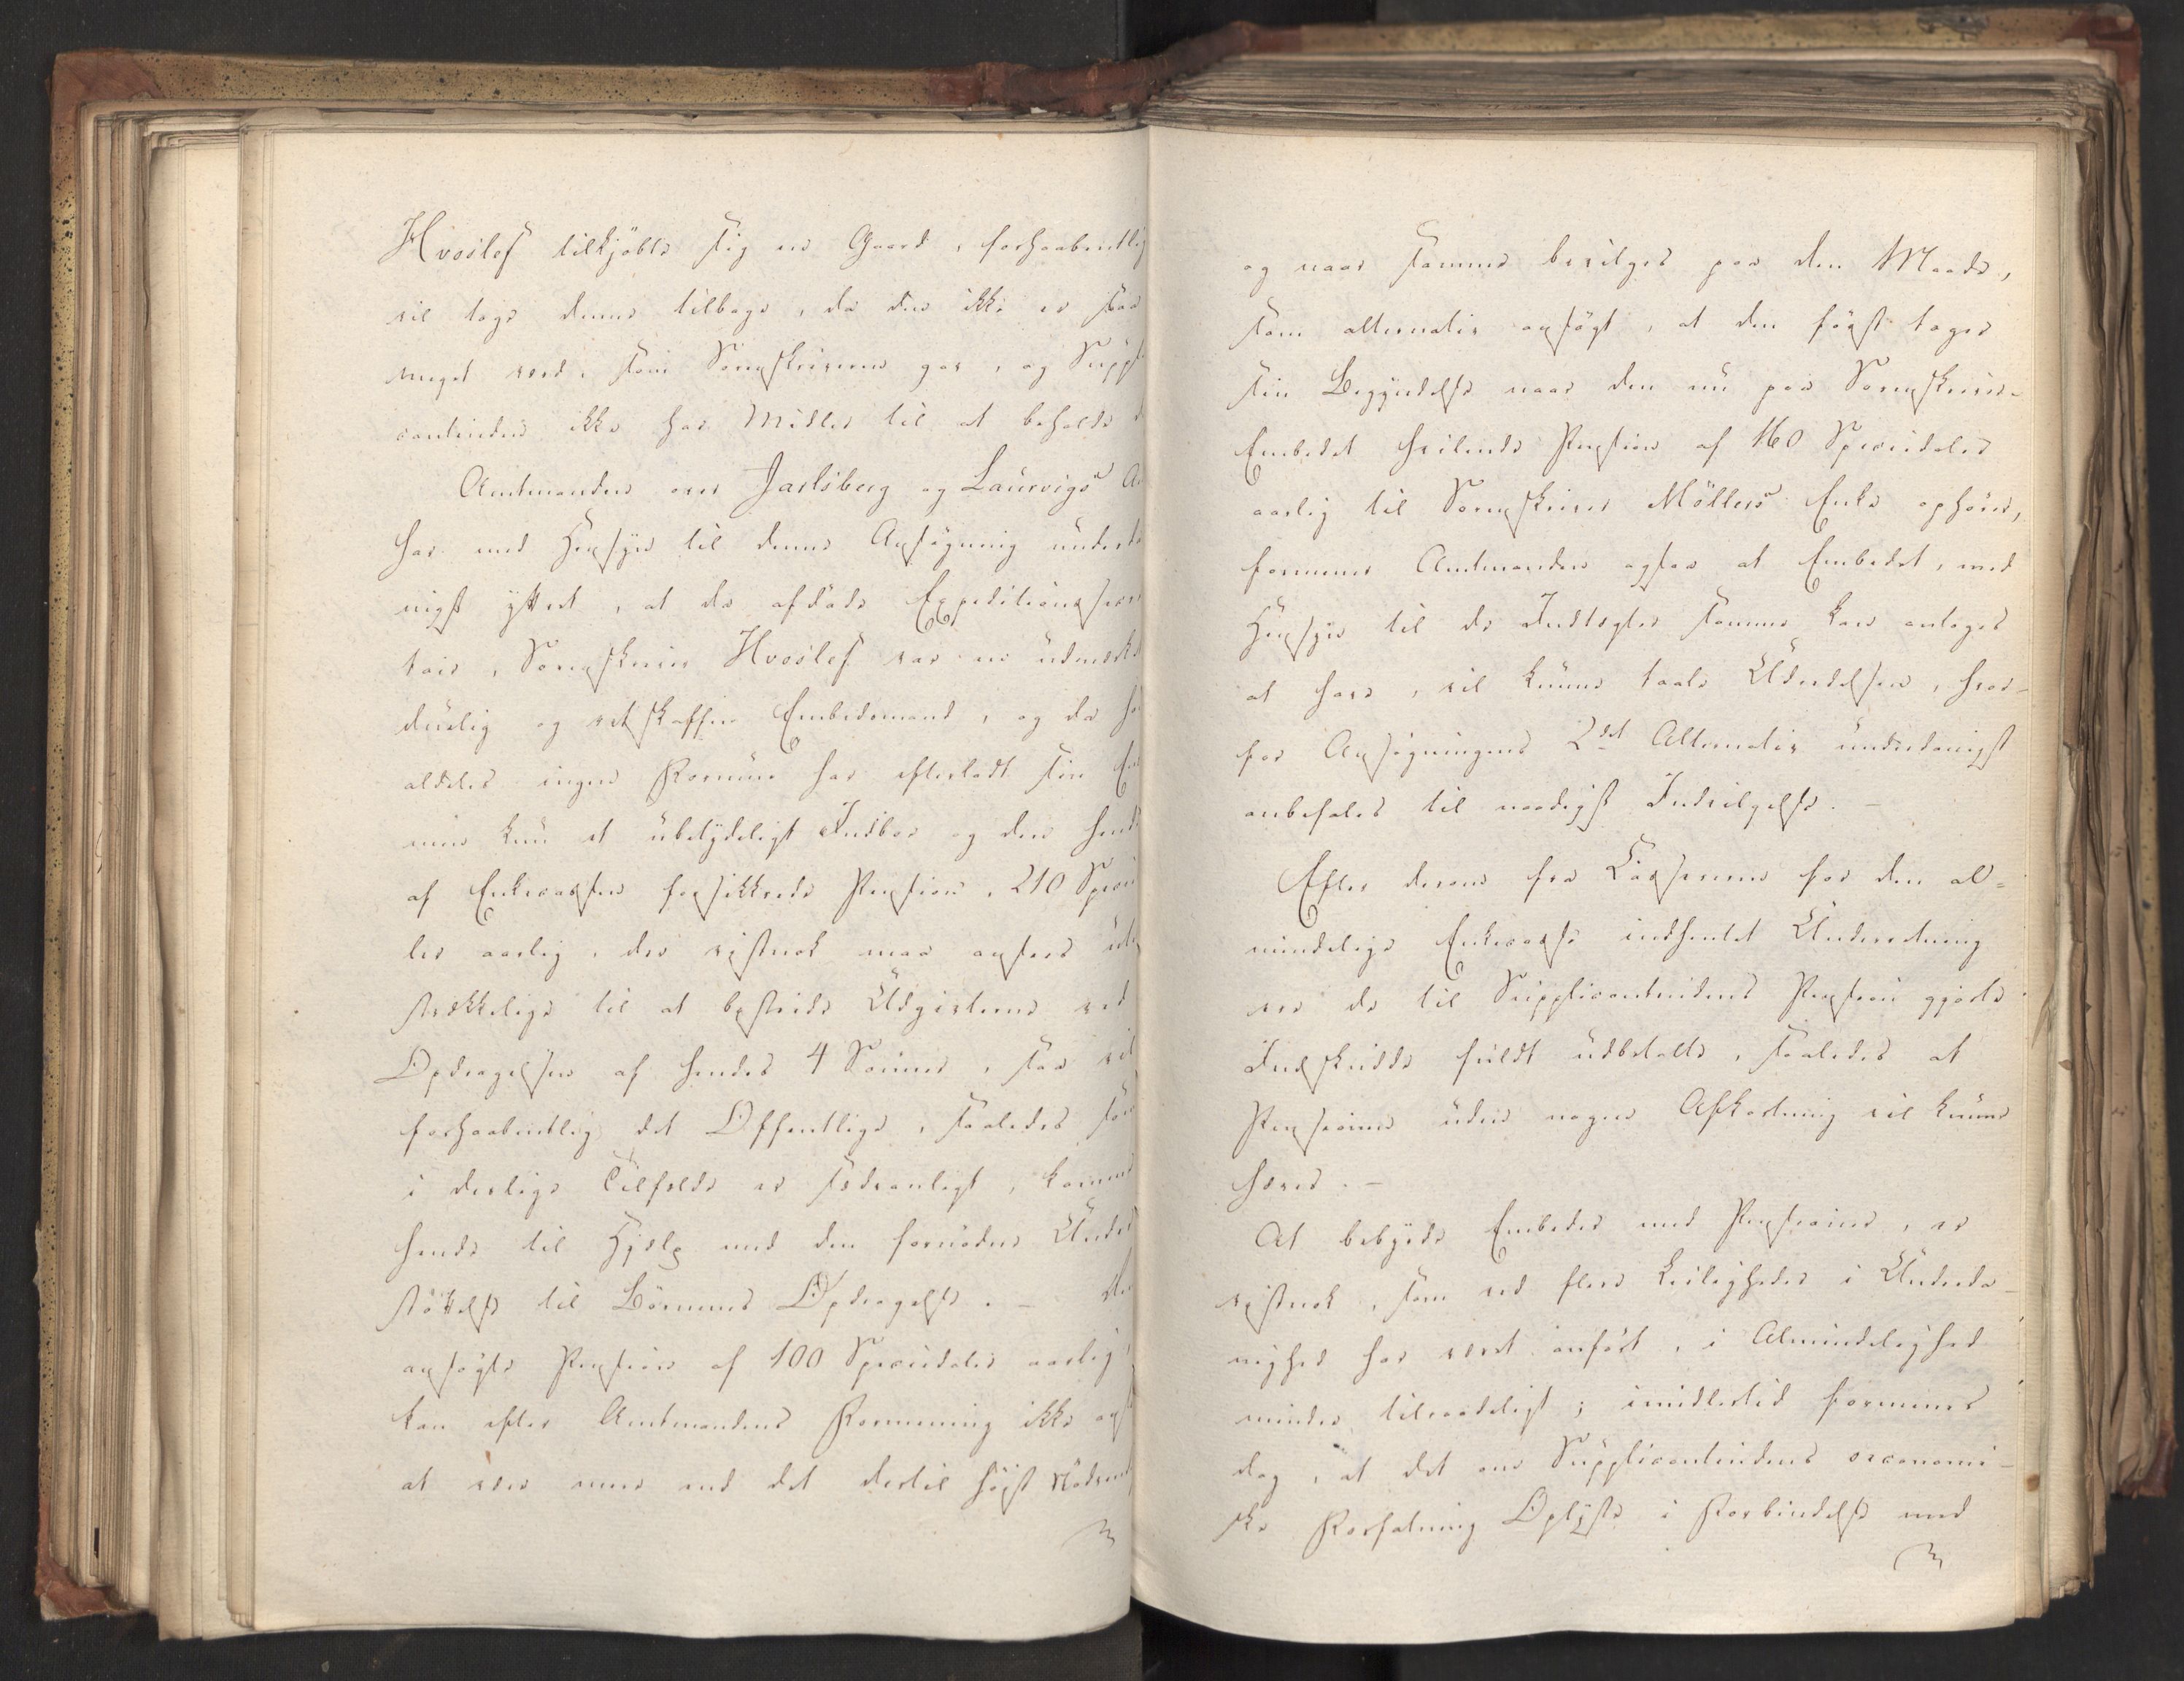 Hvoslef tilkjöbte sig en Gaard, forhaabentlig
vil tage denne tilbage, da den ikke er saa
meget værd, som Sorenskriveren gav, og Suppli
cantinden ikke har Midler til at beholde d
Amtmanden over Jarlsberg og Laurvigs A
har med Hensyn til denne Ansøgning underda
nigst yttret, at da afdøde Expeditionssecre
tair, Sorenskriver Hvoslef var en udmærket
duelig og retskaffen Embedsmand, og da ha
aldeles ingen Formue har efterladt sin En
men kun et ubetydeligt Indboe og den hende
af Enkecassen forsikkrede Pension, 210 Specie
ler aarlig, der vistnok maa ansees util
strækkelige til at bestride Udgifterne ved
Opdragelsen af hendes 4 Sönner, saa vil
forhaabentlig det Offentlige, saaledes som
i deslige Tilfælde er sædvanligt, komme
hende til Hjælp med den fornødne Under
støttelse til Börnenes Opdragelse. – Den
ansøgte Pension af 100 Speciedaler aarlig,
kan efter Amtmandens Formening ikke ans
at være mere end det dertil höist Nödvend
og naar samme bevilges paa den Maade,
som alternativ ansøgt, at den först tager
sin Begyndelse naar den nu paa Sorenskriver-
Embedet hvilende Pension af 160 Speciedaler
aarlig til Sorenskriver Möllers Enke ophører,
formener Amtmanden ogsaa at Embedet, med
Hensyn til de Indtægter samme kan antages
at have, vil kunne taale Udredelsen, hvor-
for Ansøgningens 2det Alternativ underdanigst
anbefales til naadigst Indvilgelse. –
Efter derom fra Casserern for den al=
mindelige Enkecasse indhentet Underretning
ere de til Supplicantindens Pension gjorte
Indskudde fuldt udbetalte, saaledes at
Pensionen uden nogen Afkortning vil kunne
hæves. –
At bebyrde Embeder med Pensioner, er
vistnok, som ved flere Leiligheder i Underda-
nighed har været anført, i Almindelighed
mindre tilraadeligt; imidlertid formenes
dog, at det om Supplicantindens oeconomi-
ske Forfatning Oplyste i Forbindelse med